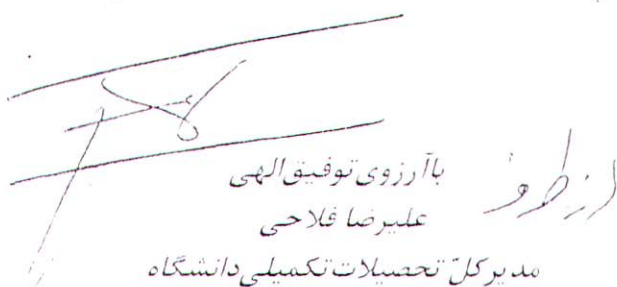 باآرزوی توفیق الهی
از طرف
علیرضا فلاحی
مدیر کلّ تحصیلات تکمیلی دانشگاه